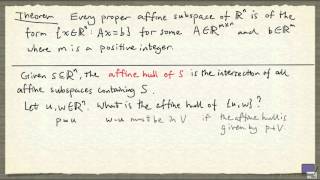 Theorem Every proper affine subspace of ℝⁿ is of the
form {x∈ℝⁿ: Ax=b} for some A∈ℝᵐˣⁿ and b∈ℝᵐ
where m is a positive integer.
Given S⊆ℝⁿ, the affine hull of S is the intersection of all
affine subspaces containing S.
Let u,w∈ℝⁿ. What is the affine hull of {u,w}?
p=u w-u must be in V if the affine hull is
given by p+V